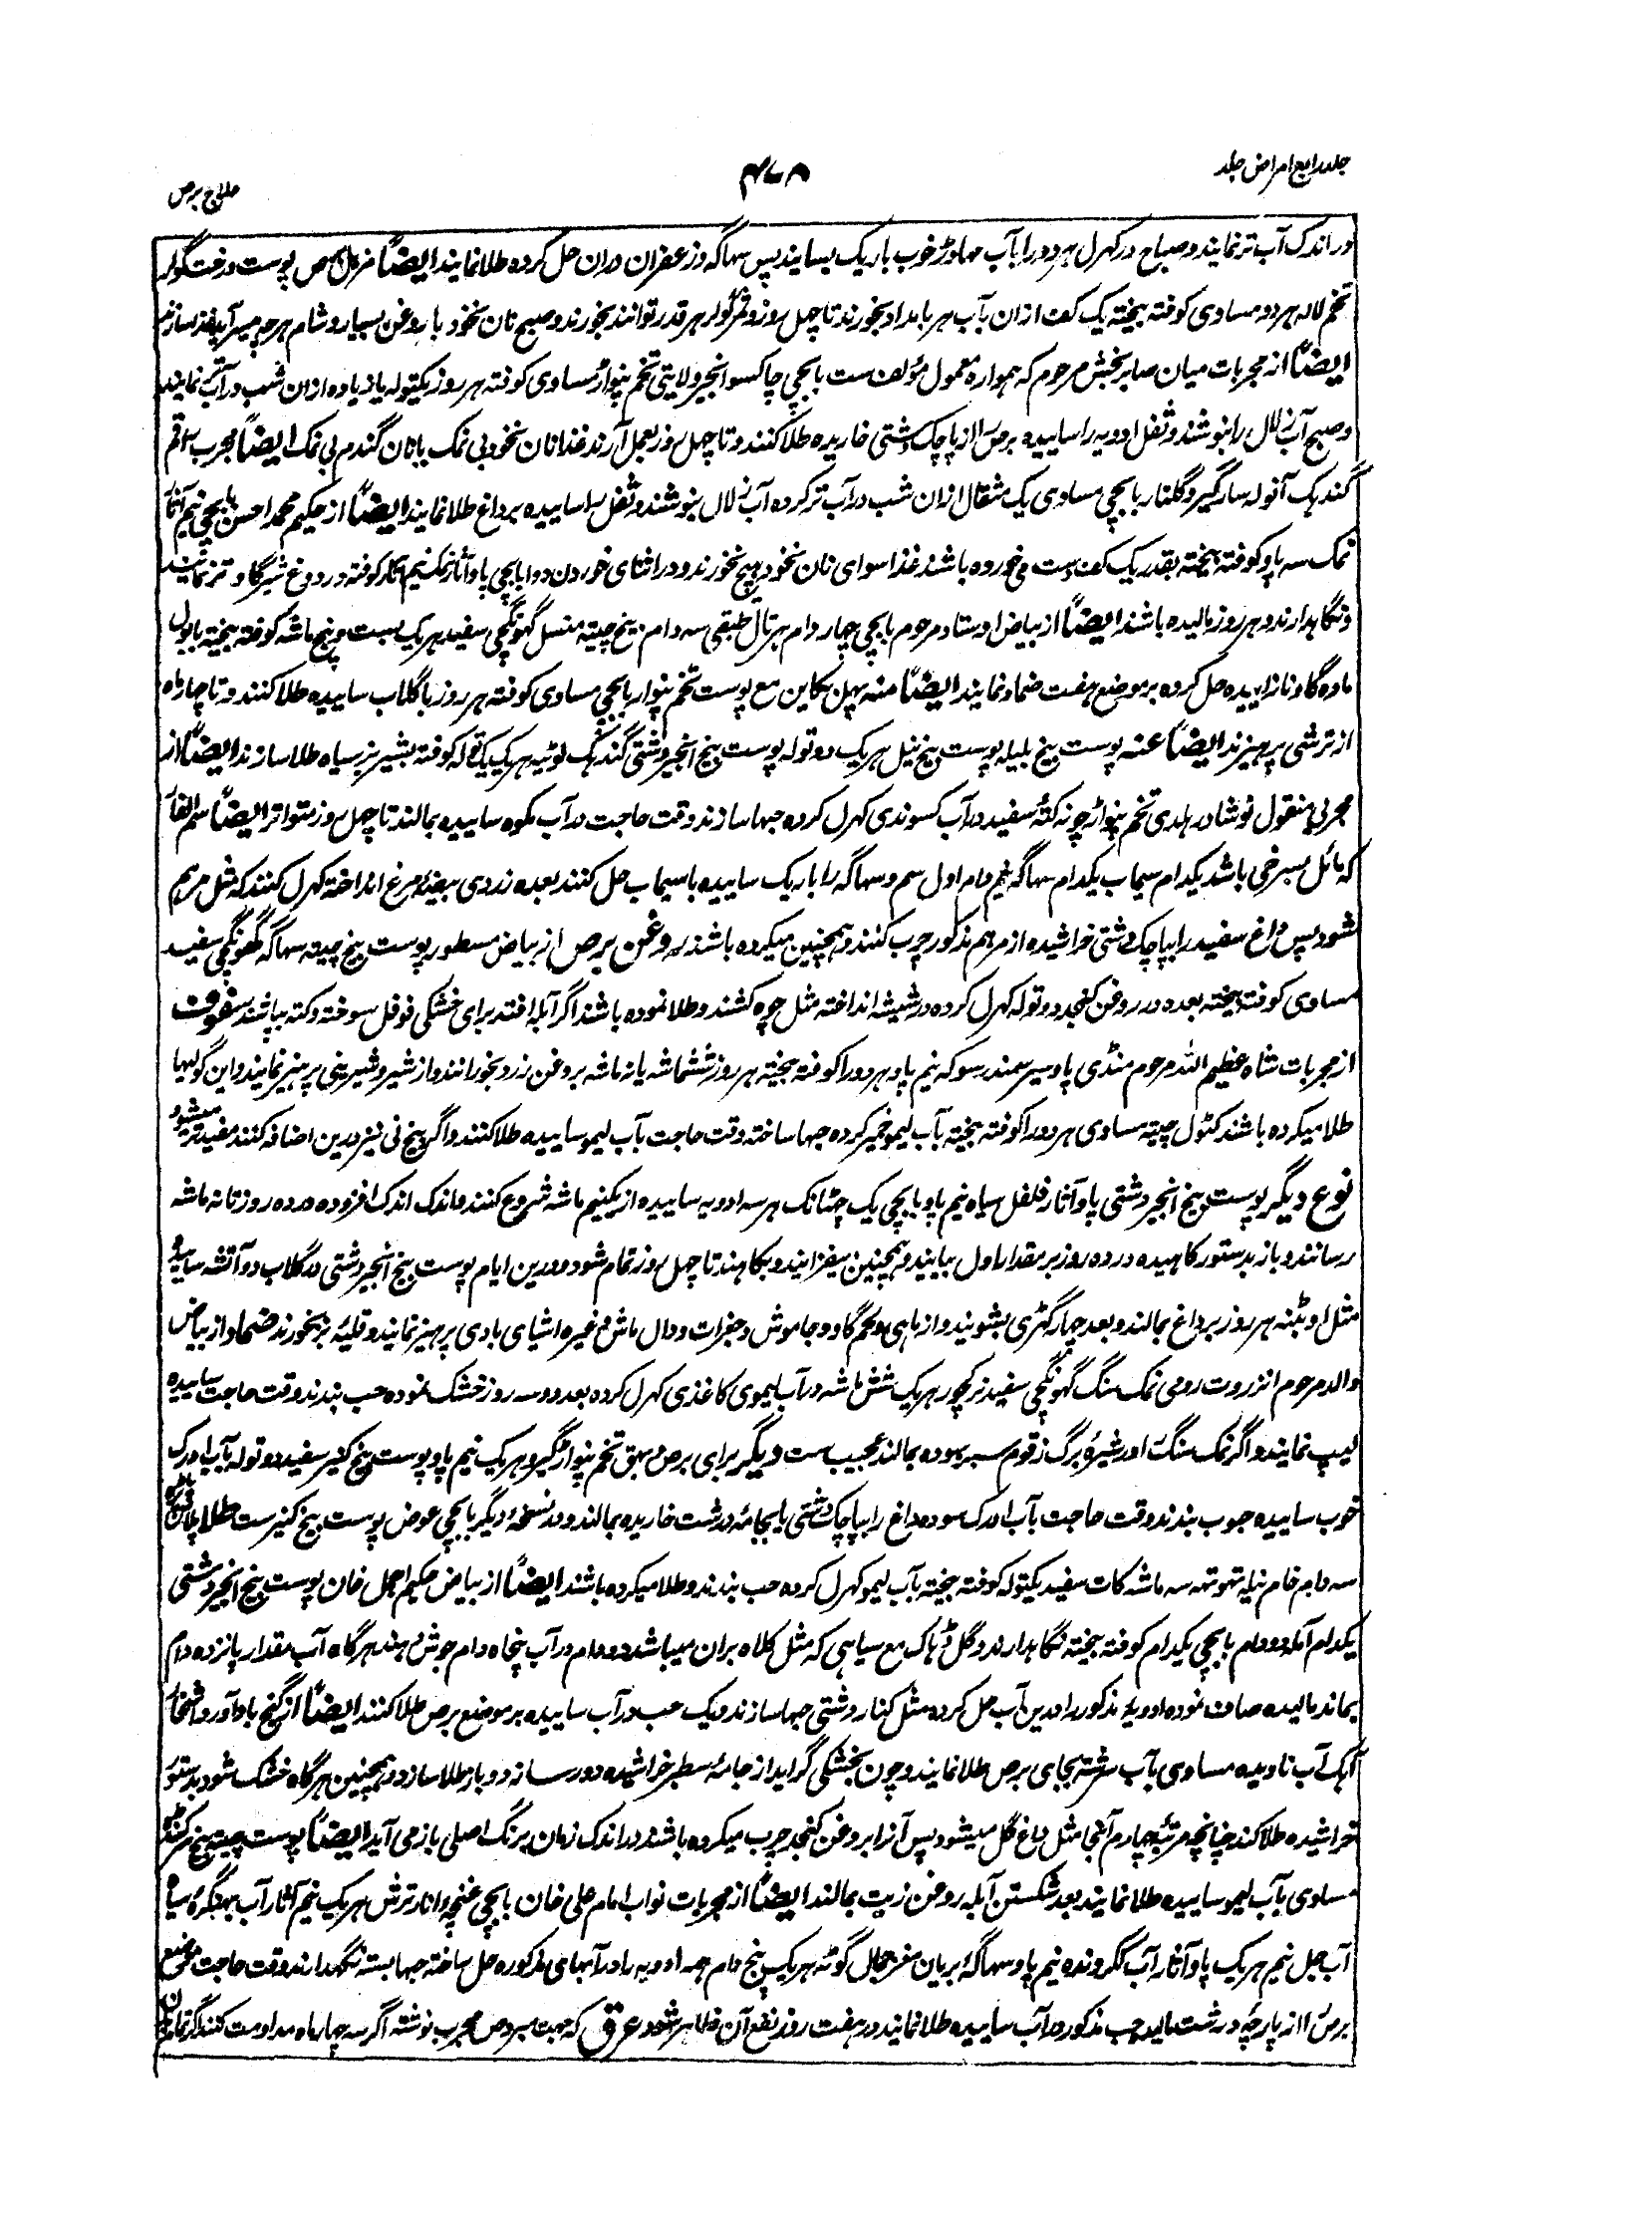 جلد رابع امراض جلد
۴۷۸
علاج برص
در اندک آب تر نمایند و صباح در کهرل هر دو را بآب مهاوڑ خوب باریک بسایند پس سهاگه و زعفران دران حل کرده طلا نمایند ایضاً مزیل برص پوست درخت گولر
تخم لاله هر دو مساوی کوفته بیخته یک کف ازان بآب هر بامداد بخورند تا چهل روز و ثمر گولر هر قدر توانند بخورند و صبح نان نخود با روغن بسیار و شام هر چه میسر آید غذا سازند
ایضاً از مجربات میان صابر بخش مرحوم که همواره معمول مؤلف ست بابچی چاکسو انجیر ولایتی تخم پنواڑ مساوی کوفته هر روز یکتوله یا زیاده ازان شب در آب تر نمایند
و صبح آب زلال را بنوشند و ثفل ادویه را ساییده برص را از پاچک دشتی خاریده طلا کنند و تا چهل روز بعمل آرند غذا نان نخود بی نمک یا نان گندم بی نمک ایضاً مجرب راقم
گندهک آنوله سار گیرو گلنار بابچی مساوی یک مثقال ازان شب در آب تر کرده آب زلال بنوشند و ثفل را ساییده بر داغ طلا نمایند ایضاً از حکیم محمد احسن بابچی نیم آثار
نمک سه پاو کوفته بیخته بقدر یک کف دست می خورده باشند غذا سوای نان نخود هیچ نخورند و در اثنای خوردن دوا بابچی پاو آثار نمک نیم آثار کوفته در دوغ شیر گاو تر نمایند
و نگاهدارند و هر روز مالیده باشند ایضاً از بیاض اوستاد مرحوم بابچی چهار دام هرتال طبقی سه دام بیخ چیته منسل گهونگچی سفید هر یک بست و پنج ماشه کوفته بیخته بابول
ماده گاو نازاییده حل کرده بر موضع هفت ضماد نمایند ایضاً منه پهل بکاین مع پوست تخم پنوار بابچی مساوی کوفته هر روز با گلاب ساییده طلا کنند و تا چار ماه
از ترشی پرهیزند ایضاً عنه پوست بیخ بلیله پوست بیخ نیل هر یک دو توله پوست بیخ انجیر دشتی گندهک لوٹیه هر یک یکتوله کوفته بشیر بز سیاه طلا سازند ایضاً از
مجربی منقول نوشادر هلدی تخم پنواڑ چونه کتهٔ سفید در آب کسوندی کهرل کرده حبها سازند وقت حاجت در آب مکوه ساییده بمالند تا چهل روز متواتر ایضاً سم الفار
که مائل بسرخی باشد یکدام سیماب یکدام سهاگه نیم دام اول سم و سهاگه را باریک ساییده با سیماب حل کنند بعده زردی بیضهٔ مرغ انداخته کهرل کنند که مثل مرهم
شود پس داغ سفید را بپاچک دشتی خراشیده از مرهم مذکور چرب کنند و همچنین میکرده باشند روغن برص از بیاض مسطور پوست بیخ چیته سهاگه گهونگچی سفید
مساوی کوفته بیخته بعده در روغن کنجد دو توله کهرل کرده در شیشه انداخته مثل چوه کشند و طلا نموده باشند اگر آبله افتد برای خشکی فوفل سوخته و کته بپاشند سفوف
از مجربات شاه عظیم الله مرحوم منڈی پاو سیر سمندر سوکه نیم پاو هر دو را کوفته بیخته هر روز ششماشه یا نه ماشه بروغن زرد بخورانند و از شیر و شیرینی پرهیز نمایند و این گولیها
طلا میکرده باشند کٹول چیته مساوی هر دو را کوفته بیخته بآب لیمو خمیر کرده حبها ساخته وقت حاجت بآب لیمو ساییده طلا کنند و اگر بیخ نی نیز درین اضافه کنند مفید تر میشود
نوع دیگر پوست بیخ انجیر دشتی پاو آثار فلفل سیاه نیم پاو بابچی یک چٹانک هر سه ادویه ساییده از یکنیم ماشه شروع کنند و اندک اندک افزوده در ده روز تا نه ماشه
رسانند و باز بدستور کاهیده در ده روز بر مقدار اول بیایند و همچنین بیفزایند و بکاهند تا چهل روز تمام شود و درین ایام پوست بیخ انجیر دشتی در گلاب دو آتشه ساییده
مثل اوبٹنه هر روز بر داغ بمالند و بعد چهار گهڑی بشویند و از ماهی و لحم گاو و جاموش و جغرات و دال ماش و غیره اشیای بادی پرهیز نمایند و قلیهٔ بز بخورند ضماد از بیاض
والد مرحوم انزروت رومی نمک سنگ گهونگچی سفید نرکچور هر یک شش ماشه در آب لیموی کاغذی کهرل کرده بعد دو سه روز خشک نموده حب بندند وقت حاجت ساییده
لیپ نمایند و اگر نمک سنگ را در شیرهٔ برگ زقوم سبز سوده بمالند عجیب ست دیگر برای برص و بهق تخم پنواڑ گیرو هر یک نیم پاو پوست بیخ کنیر سفید دو توله بآب ادرک
خوب ساییده حبوب بندند وقت حاجت بآب ادرک سوده داغ را بپاچک دشتی یا بجامهٔ درشت خاریده بمالند و در نسخهٔ دیگر بابچی عوض پوست بیخ کنیر ست طلا
سه دام خام نیله تهوتهه سه ماشه کات سفید یکتوله کوفته بیخته بآب لیمو کهرل کرده حب بندند و طلا میکرده باشند ایضاً از بیاض حکیم اجمل خان پوست بیخ انجیر دشتی
یکدام آمله دو دام بابچی یکدام کوفته بیخته نگاهدارند و گل ڈهاک مع سیاهی که مثل کلاه بران میباشد دو دام در آب پنجاه دام جوش دهند هر گاه آب مقدار پانزده دام
بماند مالیده صاف نموده ادویهٔ مذکور را درین آب حل کرده مثل کنار دشتی حبها سازند و یک حب در آب ساییده بر موضع برص طلا کنند ایضاً از گنج بادآورد
آهک آب نادیده مساوی بآب سرشته بجای برص طلا نمایند و چون بخشکی گراید از جامهٔ سطبر خراشیده دور سازد و باز طلا سازد و همچنین هر گاه خشک شود بدستور
خراشیده طلا کند چنانچه مرتبهٔ چهارم آنجا مثل داغ گل میشود پس آنرا بروغن کنجد چرب میکرده باشند در اندک زمان برنگ اصلی باز می آید ایضاً پوست چیته بیخ
مساوی بآب لیمو ساییده طلا نمایند بعد شکستن آبله روغن زیت بمالند ایضاً از مجربات نواب امام علی خان بابچی غنچه انار ترش هر یک نیم آثار آب بهنگرهٔ سیاه
آب جل نیم هر یک پاو آثار آب ککرونده نیم پاو سهاگهٔ بریان مغز جمال گوٹه هر یک پنج دام همه ادویه را در آبهای مذکوره حل ساخته حبها بسته نگهدارند وقت حاجت موضع
برص را از پارچهٔ درشت مالیده حب مذکور در آب ساییده طلا نمایند در هفت روز نفع آن ظاهر شود عرق که جهت برص مجرب نوشته اگر سه چهار ماه مداومت کنند